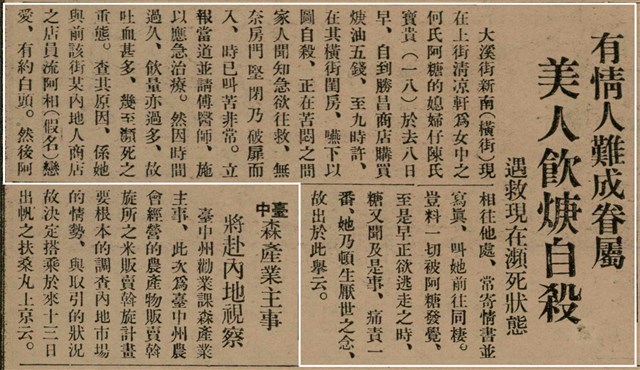 有情人難成眷屬
美人飲焿自殺
遇救現在瀕死狀態
大溪街新南(橫街)現
在上街清凉軒為女中之
何氏阿糖的媳婦仔陳氏
寶貴(一八)於去八日
早、自到勝昌商店購買
焿油五錢、至九時許、
在其橫街閨房、嚥下以
圖自殺、正在苦悶之間
家人聞知急欲往救、無
奈房門堅閉乃破扉而
入、時已叫苦非常。立
報當道並請傅醫師、施
以應急治療。然因時間
過久、飲量亦過多、故
吐血甚多、幾至瀕死之
重態。查其原因、係她
與前該街某內地人商店
之店員流阿相(假名)戀
愛、有約白頭。然後阿
相往他處、常寄情書並
寫真、叫她前往同棲。
豈料一切被阿糖發覺。
至是早正欲逃走之時、
糖又聞及是事、痛責一
番、她乃頓生厭世之念、
故出於此舉云。
臺中
森產業主事
將赴內地視察
臺中州勸業課森產業
主事、此次為臺中州農
會經營的農產物販賣斡
旋所之米販賣斡旋計畫
要根本的調查內地市場
的情勢、與取引的狀況
故決定搭乘於來十三日
出帆之扶桑丸上京云。